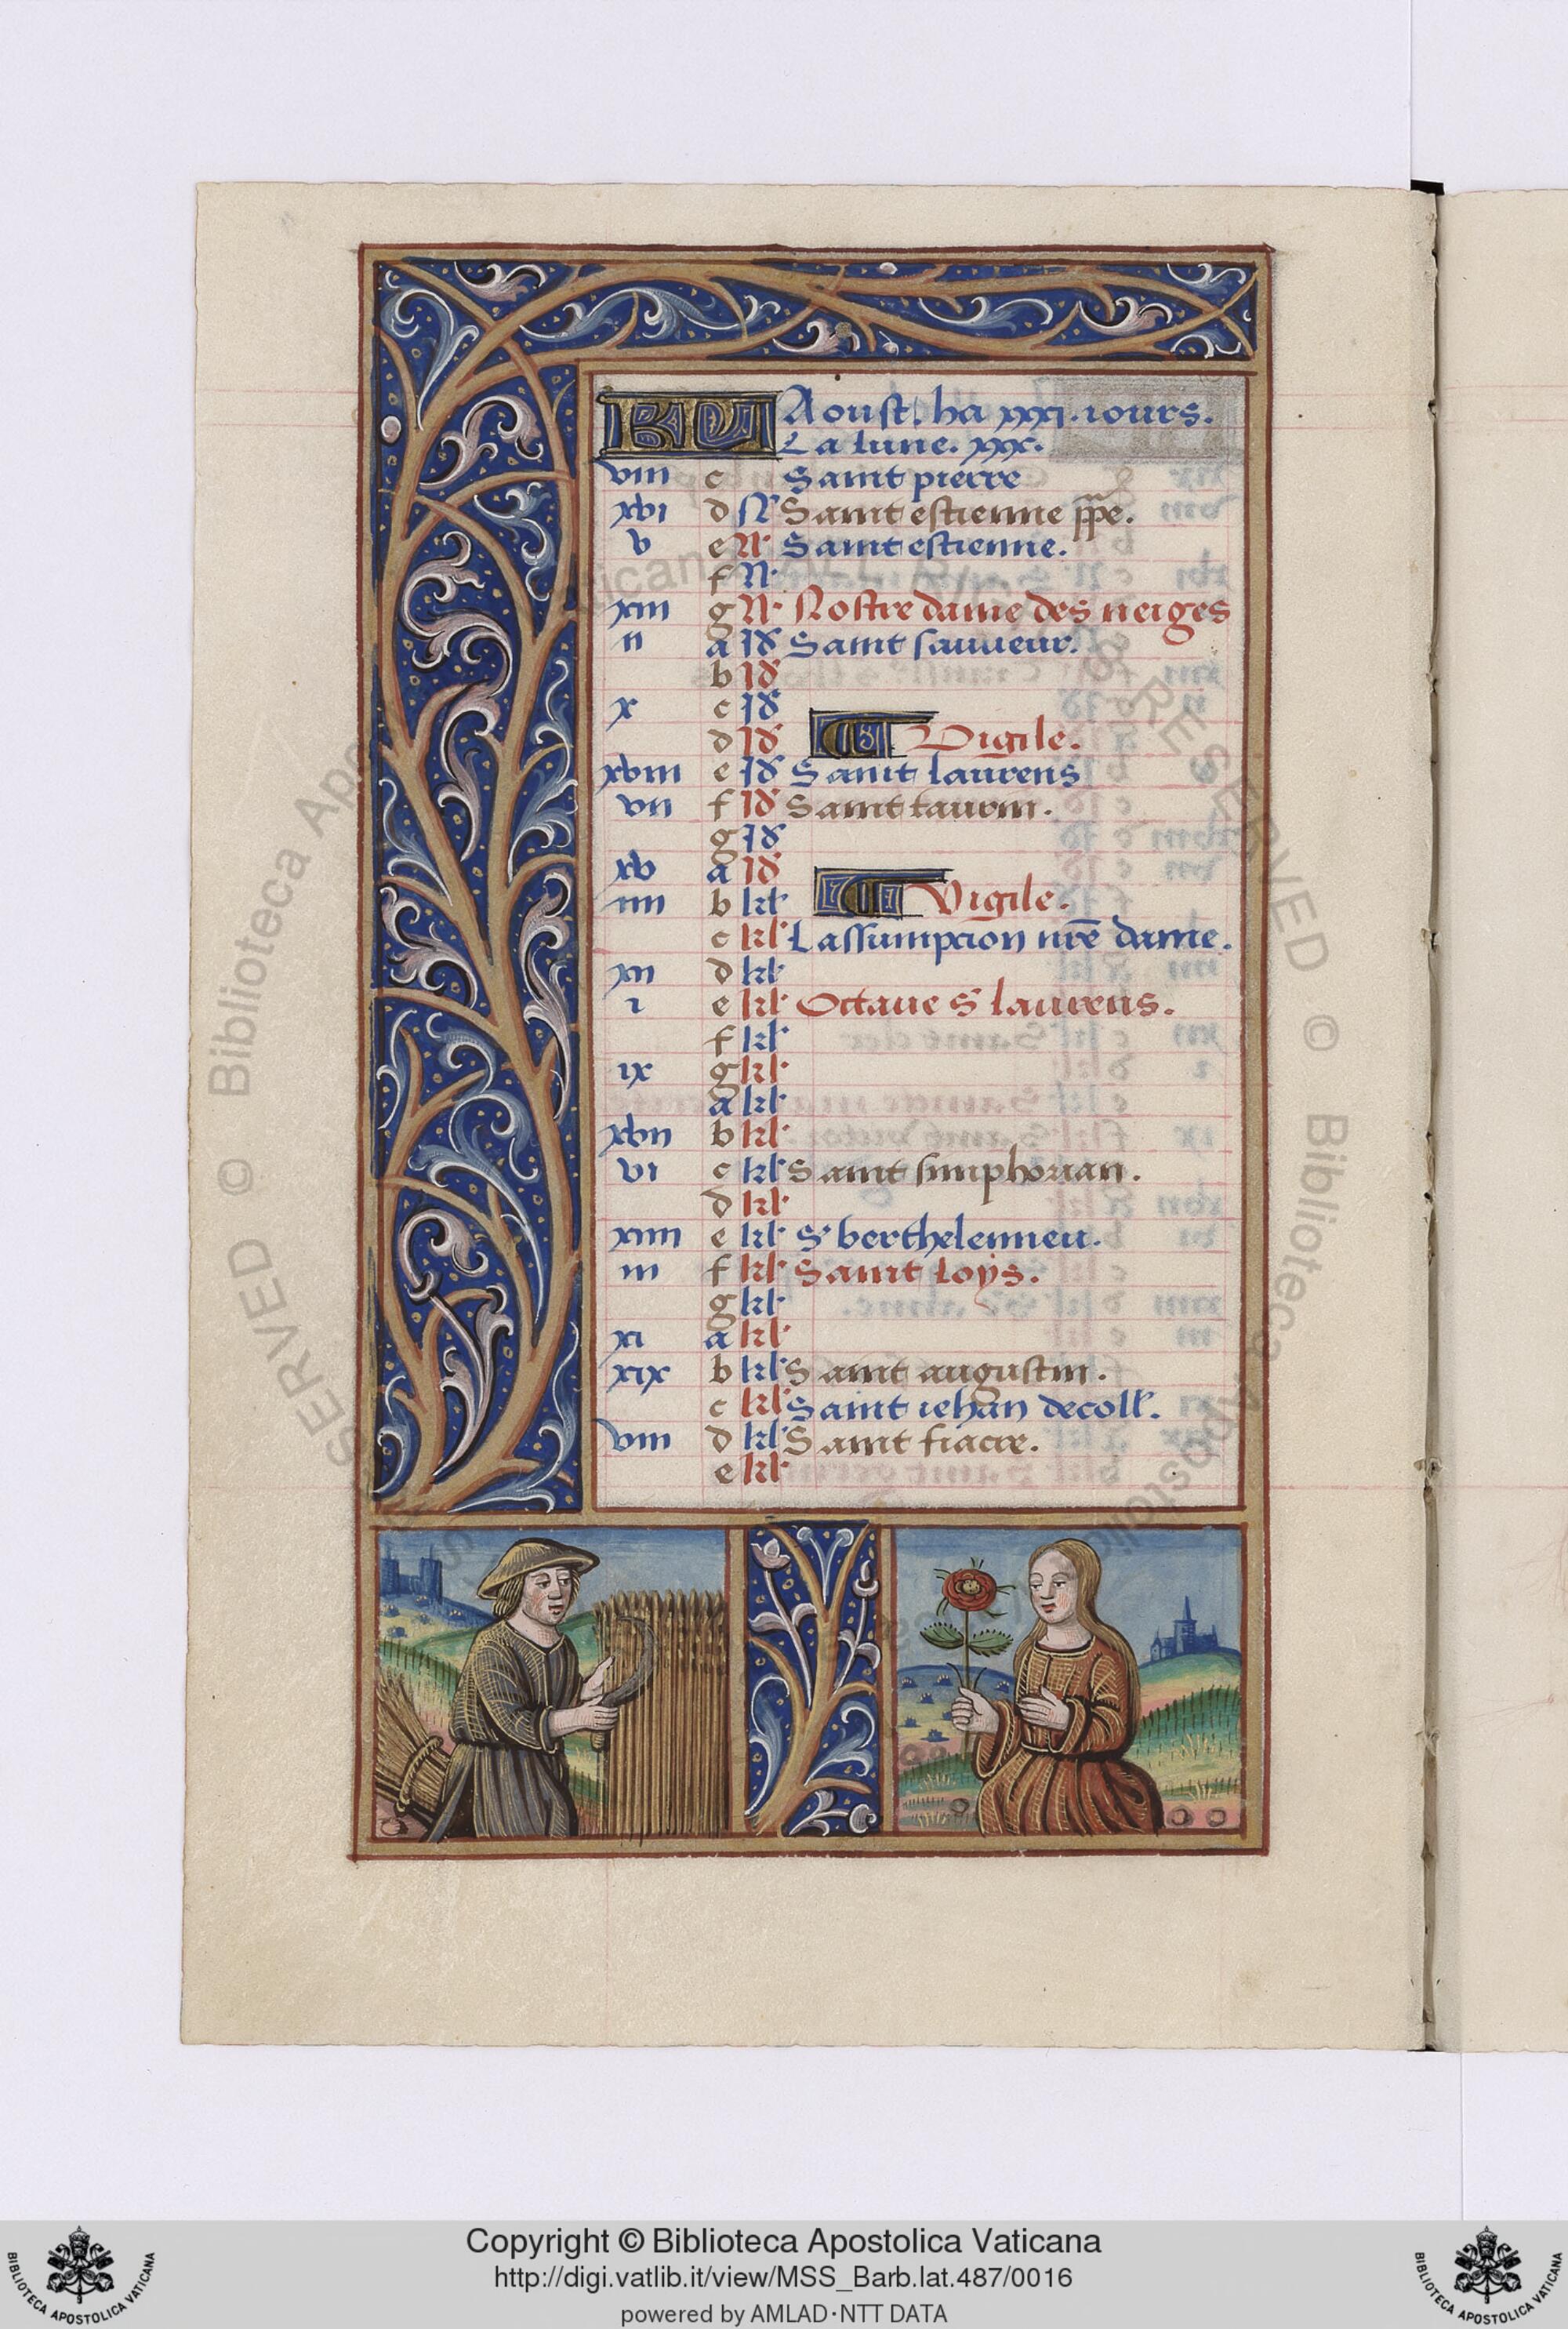 KL Aoust. ha xxxi. iours.
La lune. xxx.
viii c Saint pierre
xvi d N Saint estienne ppe.
v e N Saint estienne.
f N
xiii g N Nostre dame des neiges
ii a Id Saint sauueur.
b Id
x c Id
d Id Vigile.
xviii e Id Saint laurens
vii f Id Saint taurin.
g Id
xv a Id
iiii b kl Vigile.
c kl Lassumpcion nre dame.
xii d kl
i e kl Octaue s laurens.
f kl
ix g kl
a kl
xvii b kl
vi c kl Saint simphorian.
d kl
xiiii e kl S berthelemieu.
iii f kl Saint loys.
g kl
xi a kl
xix b kl Saint augustin.
c kl Saint iehan decoll.
viii d kl Saint fiacre.
e kl
Copyright © Biblioteca Apostolica Vaticana
http://digi.vatlib.it/view/MSS_Barb.lat.487/0016
powered by AMLAD·NTT DATA
BIBLIOTECA APOSTOLICA VATICANA
BIBLIOTECA APOSTOLICA VATICANA